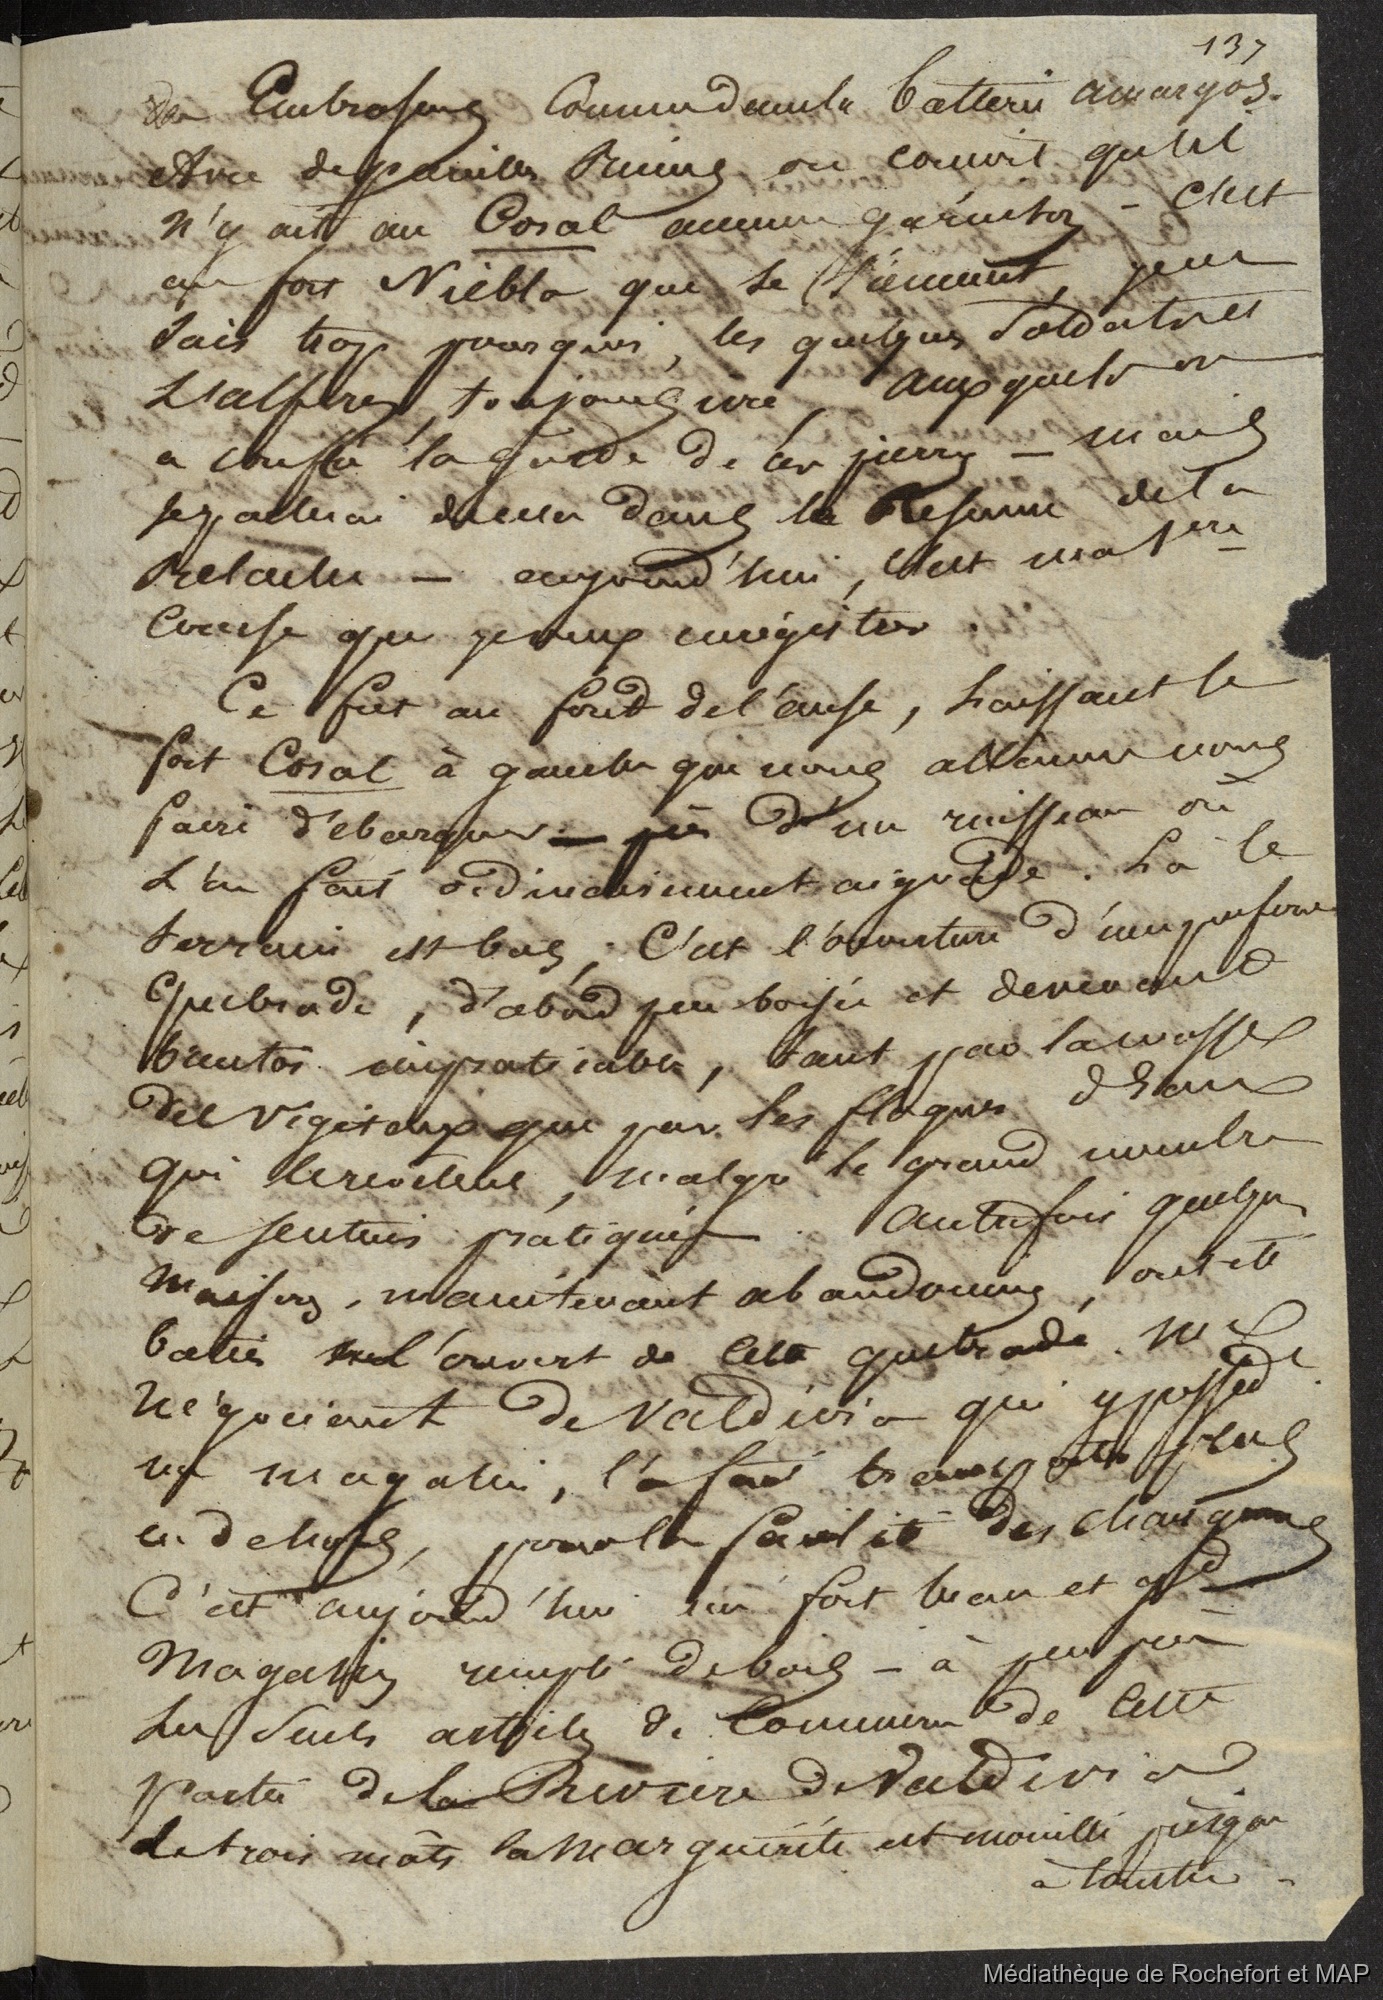 137
des Embrasures Commandant la batterie amargos.
Avec de pareilles Ruines on conçoit qu'il
n'y ait au Coral aucune garnison - C'est
au fort Niebla que se tiennent, je ne
sais trop pourquoi, les quelques Soldats et
L'alferez, toujours ivre, auxquels on
a confié la garde de ces pierres — mais
dans le Résumé de la
Relache — aujourd'hui, c'est ma 1ere
Course que je veux enrégistrer.
Ce fut au fond de l'anse, Laissant le
fort Coral à gauche que nous allames nous
faire débarquer — près d'un ruisseau où
L'on fait ordinairement aiguade. Là le
terrain est bas; C'est l'ouverture d'une profonde
Quebrade, d'abord peu boisée et devenant
bientôt impraticable, tant par la masse
des Végétaux que par les flaques d'Eau
qui , malgré le grand nombre
de sentiers pratiqués. Autrefois quelques
maisons, maintenant abandonnées, ont été
baties à l'ouvert de cette quebrade. Mr
Négociant de Valdivia qui y possede
un magasin, l'a fait transporter plus
en dehors, pour la facilité des chargemens
C'est aujourd'hui un fort beau et gd
Magasin rempli de bois — à peu près
Les Seuls articles de Commerce de Cette
partie de la Rivière de Valdivia
Le trois mâts la Marguérite est mouillé jusque
à toucher -
Médiathèque de Rochefort et MAP